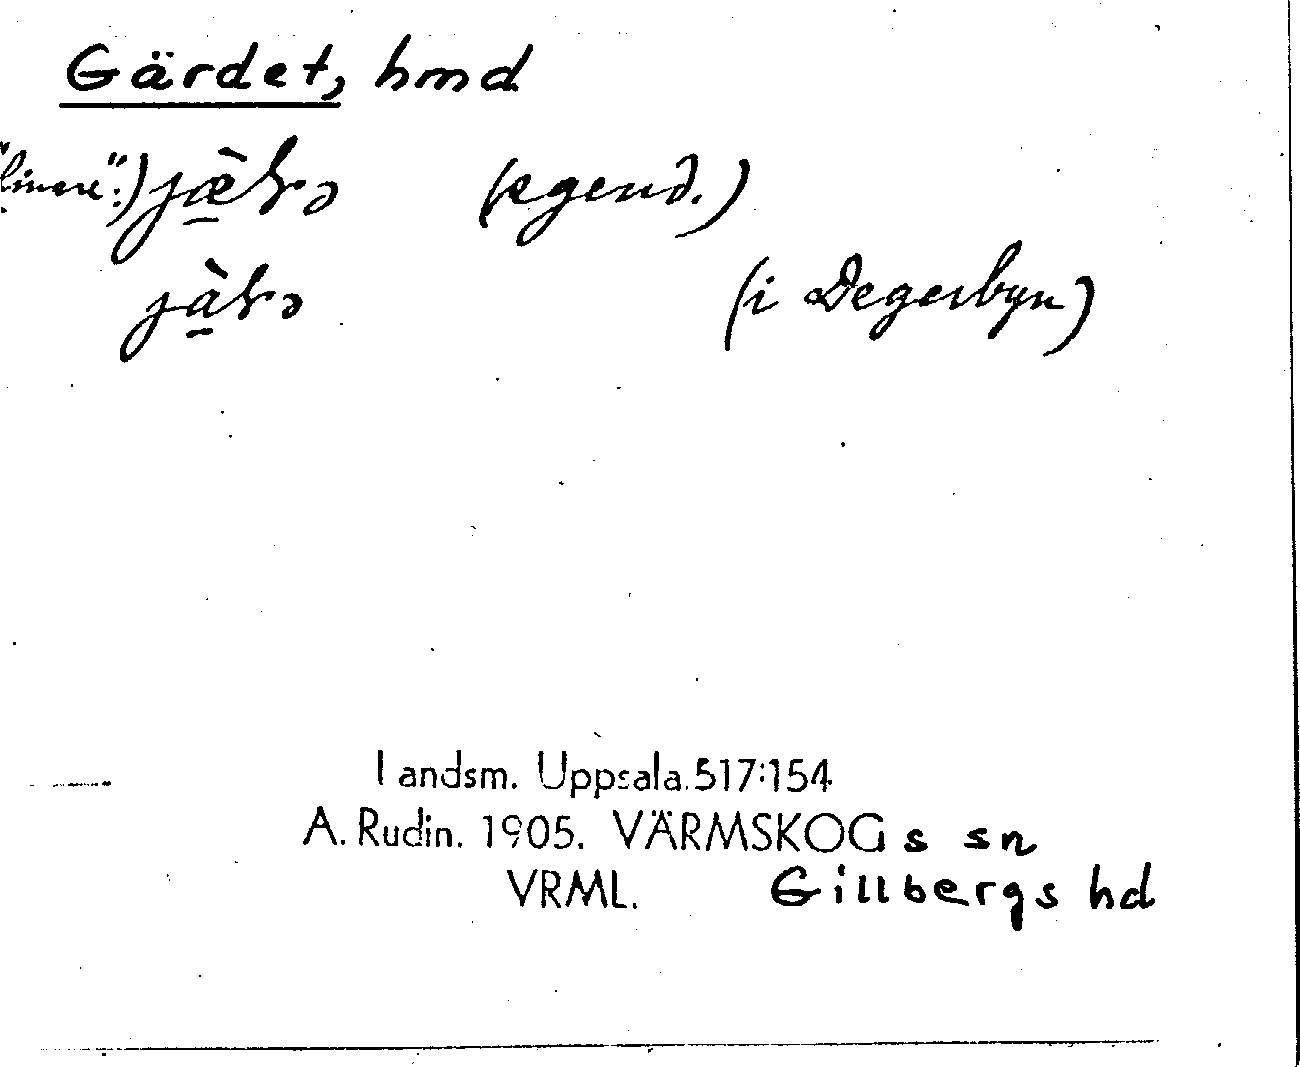 Gärdet, hmd
(egend.)
(i Degerbyn)
Landsm. Uppsala. 517:154
A. Rudin. 1905. VÄRMSKOGs sn
VRML. Gillbergs hd